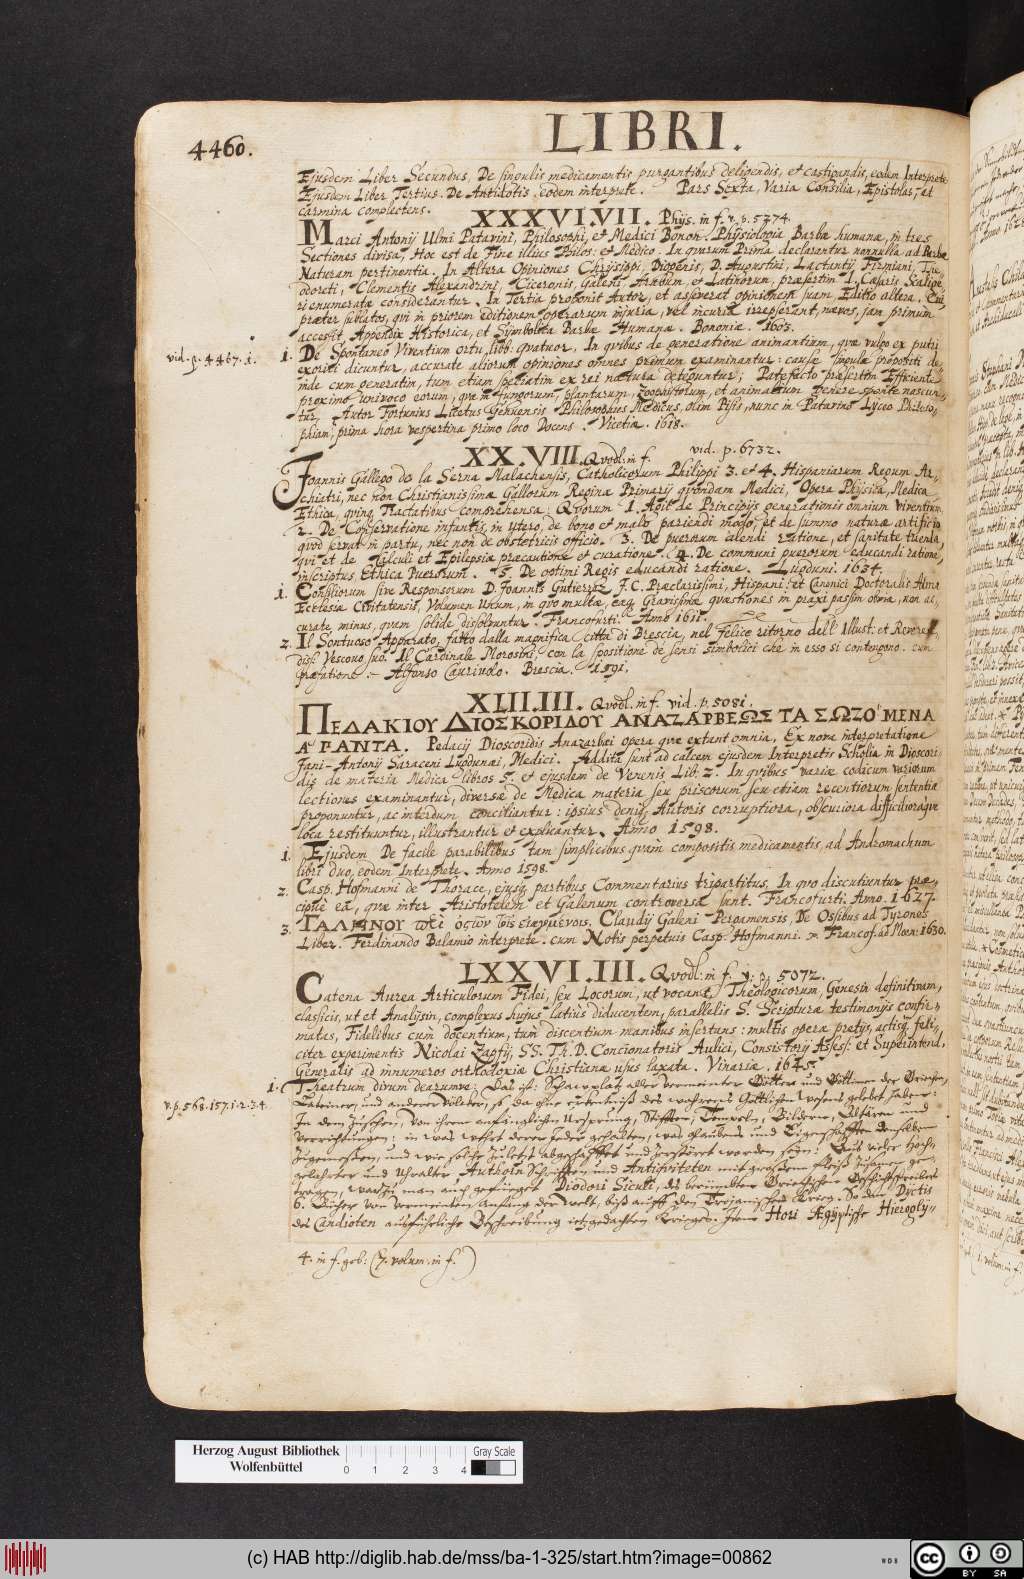 4460.
LIBRI.
Ejusdem Liber Secundus, De singulis medicamentis purgantibus deligendis, et castigandis, eodem Interprete
Ejusdem Liber Tertius. De Antidotis eodem interprete. Pars Sexta, Varia Consilia, Epistolas, et
carmina complectens.
XXXVI.VII. Phys. in f. v. p. 5274.
Marci Antonij Ulmi Patavini, Philosophi, et Medici Bonon. Physiologia Barbæ humanæ, in tres
Sectiones divisa, Hoc est de Fine illius Philos: et Medico. In quarum Prima declarantur nonnulla ad Barbæ
Naturam pertinentia. In Altera Opiniones Chrysippi, Diogenis, D. Augustini, Lactantij Firmiani, Theo-
doreti, Clementis Alexandrini, Ciceronis, Galeni, Arabum, et Latinorum, præsertim I. Cæsaris Scalige-
ri enumeratæ considerantur. In Tertia proponit Autor, et asseverat opinionem suam. Editio altera. Cui
præter sublatos, qui in priorem editionem operarum injuria, vel incuria irrepserant, nævos, jam primum
accessit Appendix Historica, et Symbolica Barbæ Humanæ. Bononiæ. 1603.
vid. p. 4467. 1.
1. De Spontaneo Viventium ortu, libb: quatuor, In quibus de generatione animantium, quæ vulgo ex putri
exoriri dicuntur, accurate aliorum opiniones omnes primum examinantur: causæ singulæ propositi de-
inde cum generatim, tum etiam speciatim ex rei natura deteguntur; Patefacto præsertim Efficiente
proximo univoco eorum, quæ in fungorum, plantarum, zoophytorum, et animantium genere sponte nascun-
tur, Autor Fortunius Licetus Genuensis Philosophus Medicus, olim Pisis, nunc in Patavino Lyceo Philoso-
phiam, prima hora vespertina primo loco Docens. Vicetiæ. 1618.
XX.VIII. Quodl: in f. vid. p. 6732.
Joannis Gallego de la Serna Malachensis, Catholicorum Philippi 3. et 4. Hispaniarum Regum Ar-
chiatri, nec non Christianissimæ Gallorum Reginæ Primarij quondam Medici, Opera Physica, Medica
Ethica, quinq Tractatibus comprehensa: Quorum 1. Agit de Principijs generationis omnium viventium
2. De Conservatione infantis in utero, de bono et malo pariendi modo, et de summo naturæ artificio
quod servat in partu, nec non de obstetricis officio. 3. De puerorum alendi ratione, et sanitate tuenda,
qui et de Calculi et Epilepsiæ præcautione et curatione. 4. De communi puerorum educandi ratione,
inscriptus Ethica Puerorum. 5. De optimi Regis educandi ratione. Lugduni. 1634.
1. Consiliorum sive Responsorum D. Joannis Gutierrez, J. C. Præclarissimi, Hispani: et Canonici Doctoralis Almæ
Ecclesiæ Civitatensis, Volumen Unum, in quo multæ, eæq Gravissimæ quæstiones in praxi passim obviæ, non ac-
curate minus, quam solide dissolvuntur. Francofurti. Anno 1611.
2. Il Sontuoso Apparato, fatto dalla magnifica citta di Brescia, nel felice ritorno dell' Illust: et Reveren-
diss: Vescovo suo. Il Cardinale Morosini; con la spositione de sensi simbolici che in esso si contengono. cum
præfatione. - Alfonso Cauriuolo. Brescia. 1591.
XLIII.III. Quodl. in f. vid. p. 5081.
ΠΕΔΑΚΙΟΥ ΔΙΟΣΚΟΡΙΔΟΥ ΑΝΑΖΑΡΒΕΩΣ ΤΑ ΣΩΖΟΜΕΝΑ
ΑΠΑΝΤΑ. Pedacij Dioscoridis Anazarbei opera quæ extant omnia, Ex nova interpretatione
Jani-Antonij Saraceni Lugdunæi, Medici. Addita sunt ad calcem ejusdem Interpretis Scholia in Dioscori-
dis de materia Medica libros 5. et ejusdem de Venenis Lib: 2. In quibus variæ codicum variorum
lectiones examinantur, diversæ de Medica materia seu priscorum seu etiam recentiorum sententiæ
proponuntur, ac interdum conciliantur: ipsius deniq Autoris corruptiora, obscuriora difficilioraque
loca restituuntur, illustrantur et explicantur. Anno 1598.
1. Ejusdem De facile parabilibus tam simplicibus quam compositis medicamentis, ad Andromachum
libri duo, eodem Interprete. Anno 1598.
2. Casp. Hofmanni de Thorace, ejusq partibus Commentarius tripartitus, In quo discutiuntur præ-
cipue ea, quæ inter Aristotelem et Galenum controversa sunt. Francofurti. Anno. 1627.
3. ΓΑΛΗΝΟΥ περὶ ὀστῶν τοῖς εἰσαγομένοις. Claudij Galeni Pergamensis, De Ossibus ad Tyrones
Liber. Ferdinando Balamio interprete. cum Notis perpetuis Casp. Hofmanni. Francof. ad Moen: 1630.
LXXVI.III. Quodl: in f. v. p. 5072.
Catena Aurea Articulorum Fidei, seu Locorum, ut vocant, Theologicorum, Genesin definitivam,
classicis, ut et Analysin, complexus hujus latius diducentem, parallelis S. Scripturæ testimonijs confir-
matas, Fidelibus cum docentium, tum discentium manibus inserens: multis operæ pretijs, actisq feli-
citer experimentis Nicolai Zapfij, SS. Th. D. Concionatoris Aulici, Consistorij Assess: et Superintend.
Generalis ad innumeros orthodoxiæ Christianæ usus taxata. Vinariæ. 1645.
v. p. 568. 157. 1. 2. 3. 4.
1. Theatrum divum dearumve: Das ist: Schawplatz aller vermeinter Götter und Göttinnen der Griechen,
Lateiner, und anderer Völcker, so da ohne Erkentniß des wahren Göttlichen Wesens gelebet haben:
In dem Zusehen, von ihrem anfänglichen Ursprung, Stifften, Tempeln, Bildern, Altären und
Verrichtungen; in was Wehrt deren jeder gehalten, was Glaubens und Eigenschafften denselben
zugemessen, und wie solche zuletzt abgeschaffet und zerstöret worden seyn: Aus vieler hoch-
gelehrter und Uhralter Authorn Schrifften und Antiqviteten mit grossem fleiß zusammen ge-
tragen, Diodori Siculi, des berümbten Griechischen Geschichtschreibers
6. Bücher von vermeinten Anfang der Welt, biß auff den Trojanischen Krieg. So dan Dyctis
des Candioten außführliche Beschreibung jetzgedachten Krieges. Item Hori Ægyptische Hierogly-
4. in f. geb: (7. volum: in f.)
Herzog August Bibliothek
Wolfenbüttel
0 1 2 3 4
Gray Scale
(c) HAB http://diglib.hab.de/mss/ba-1-325/start.htm?image=00862
WDB
cc
BY SA